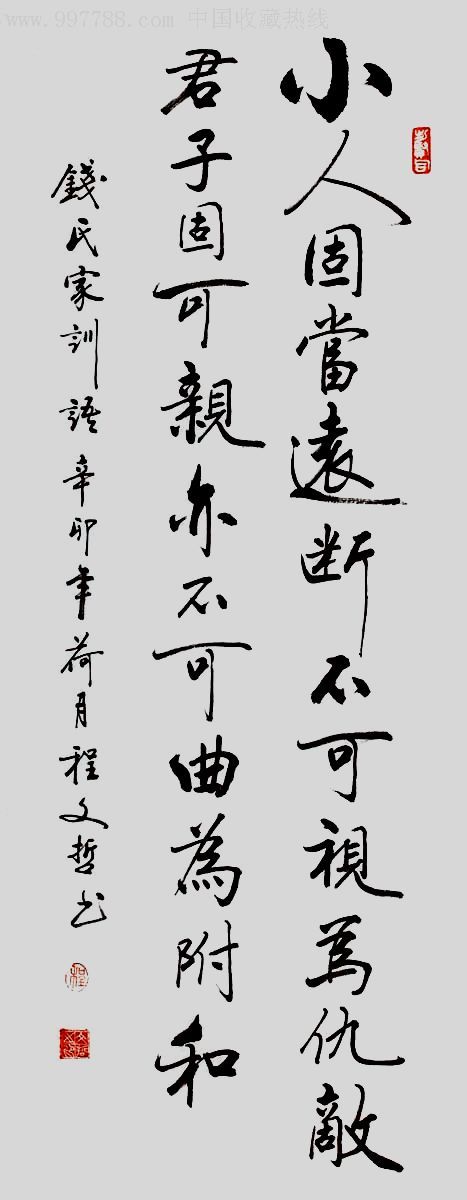 www.997788.com 中国收藏热线
小人固當遠断不可視為仇敵
君子固可親亦不可曲為附和
錢氏家訓語 辛卯年荷月程文哲书